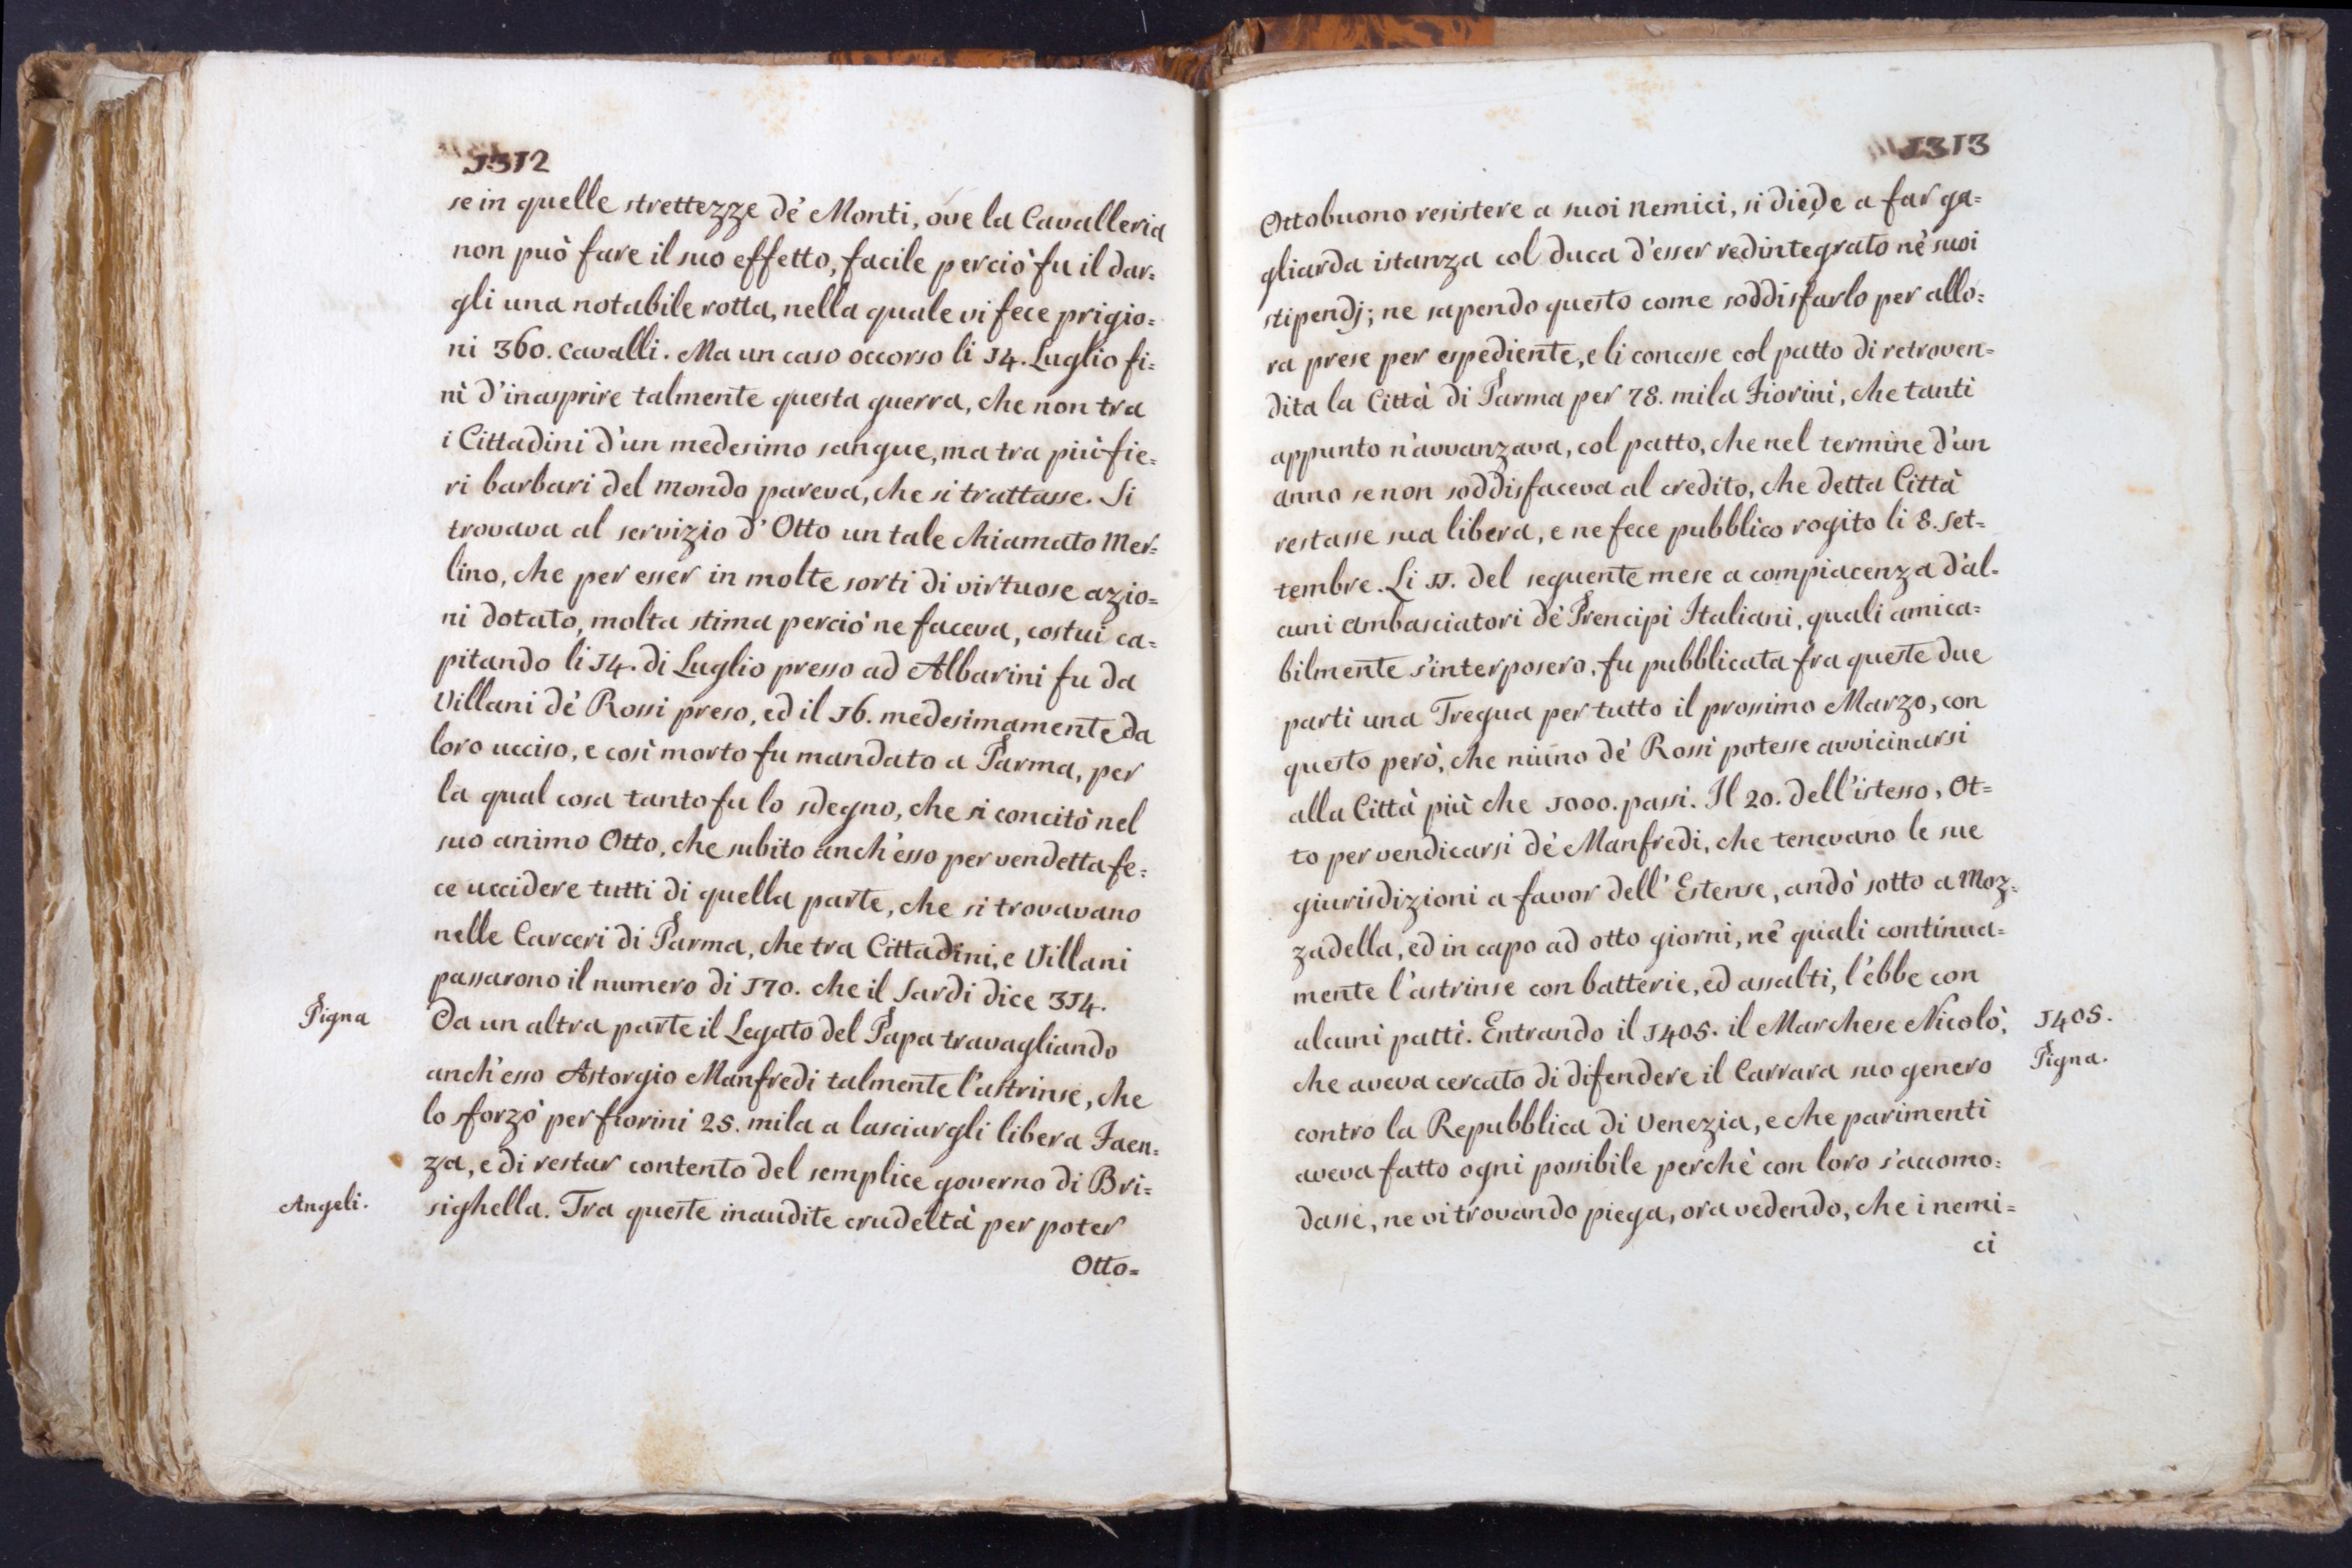 1312
se in quelle strettezze dè Monti, ove la Cavalleria
non può fare il suo effetto, facile perciò fu il dar=
gli una notabile rotta, nella quale vi fece prigio=
ni 360. cavalli. Ma un caso occorso li 14. Luglio fi=
nì d'inasprire talmente questa guerra, che non tra
i Cittadini d'un medesimo sangue, ma tra più fie=
ri barbari del mondo pareva, che si trattasse. Si
trovava al servizio d'Otto un tale chiamato Mer=
lino, che per esser in molte sorti di virtuose azio=
ni dotato, molta stima perciò ne faceva, costui ca=
pitando li 14. di Luglio presso ad Albarini fu da
Villani dè Rossi preso, ed il 16. medesimamente da
loro ucciso, e così morto fu mandato a Parma, per
la qual cosa tanto fu lo sdegno, che si concitò nel
suo animo Otto, che subito anch'esso per vendetta fe=
ce uccidere tutti di quella parte, che si trovavano
nelle Carceri di Parma, che tra Cittadini, e Villani
passarono il numero di 170. che il Sardi dice 314.
Pigna
Da un altra parte il Legato del Papa travagliando
anch'esso Astorgio Manfredi talmente l'astrinse, che
lo sforzò per fiorini 25. mila a lasciargli libera Faen=
za, e di restar contento del semplice governo di Bri=
Angeli.
sighella. Tra queste inaudite crudeltà per poter
Otto=
1313
Ottobuono resistere a suoi nemici, si diede a far ga=
gliarda istanza col duca d'esser redintegrato nè suoi
stipendj; ne sapendo questo come soddisfarlo per allo=
ra prese per espediente, e li concesse col patto di retroven=
dita la Città di Parma per 78. mila Fiorini, che tanti
appunto n'avvanzava, col patto, che nel termine d'un
anno se non soddisfaceva al credito, che detta Città
restasse sua libera, e ne fece pubblico rogito li 8. Set=
tembre. Li 11. del seguente mese a compiacenza d'al=
cuni ambasciatori dè Prencipi Italiani, quali amica=
bilmente s'interposero, fu pubblicata fra queste due
parti una Tregua per tutto il prossimo Marzo, con
questo però, che niuno dè Rossi potesse avvicinarsi
alla Città più che 1000. passi. Il 20. dell'istesso, Ot=
to per vendicarsi dè Manfredi, che tenevano le sue
giurisdizioni a favor dell'Estense, andò sotto a Moz=
zadella, ed in capo ad otto giorni, nè quali continua=
mente l'astrinse con batterie, ed assalti, l'ebbe con
alcuni patti. Entrando il 1405. il Marchese Nicolò,
1405.
che aveva cercato di difendere il Carrara suo genero
Pigna.
contro la Repubblica di Venezia, e che parimenti
aveva fatto ogni possibile perchè con loro s'accomo=
dasse, ne vi trovando piega, ora vedendo, che i nemi=
ci